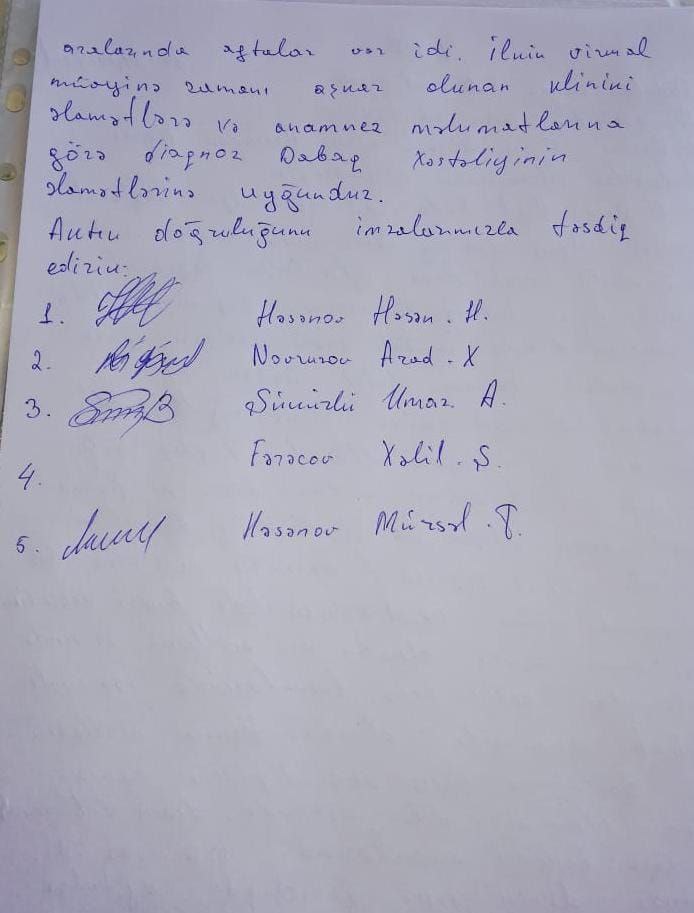 aralarında aftalar var idi. İlkin vizual
müayinə zamanı aşkar olunan kliniki
əlamətlərə və anamnez məlumatlarına
görə diaqnoz Dabaq xəstəliyinin
əlamətlərinə uyğundur.
Aktın doğruluğunu imzalarımızla təsdiq
edirik:
1. Həsənov Həsən. H.
2. Novruzov Azad. X
3. A.
Fərəcov Xəlil. Ş.
4.
5. Həsənov Mürsəl. T.